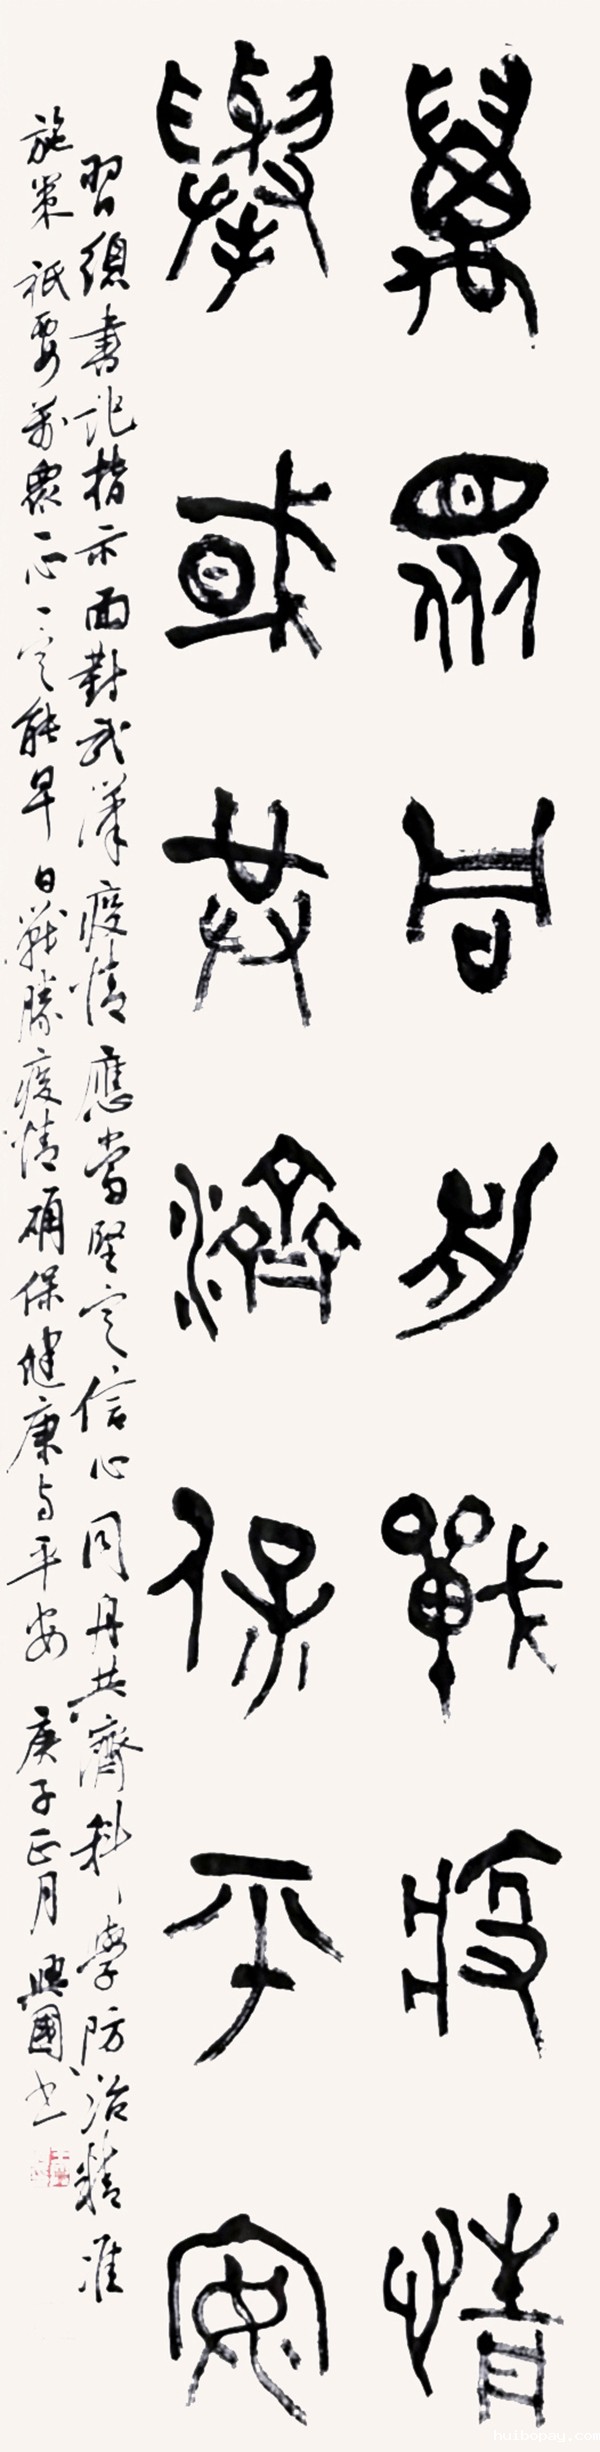 萬眾同力戰疫情
舉國共濟保平安
習總書記指示面對武漢疫情應當堅定信心同舟共濟科學防治精准
施策祇要萬眾一心一定能早日戰勝疫情确保健康与平安 庚子正月 興國书
huibopay.com